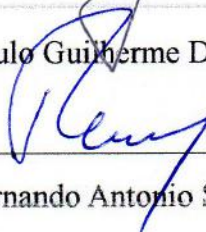 ulo Guilherme D
rnando Antonio S